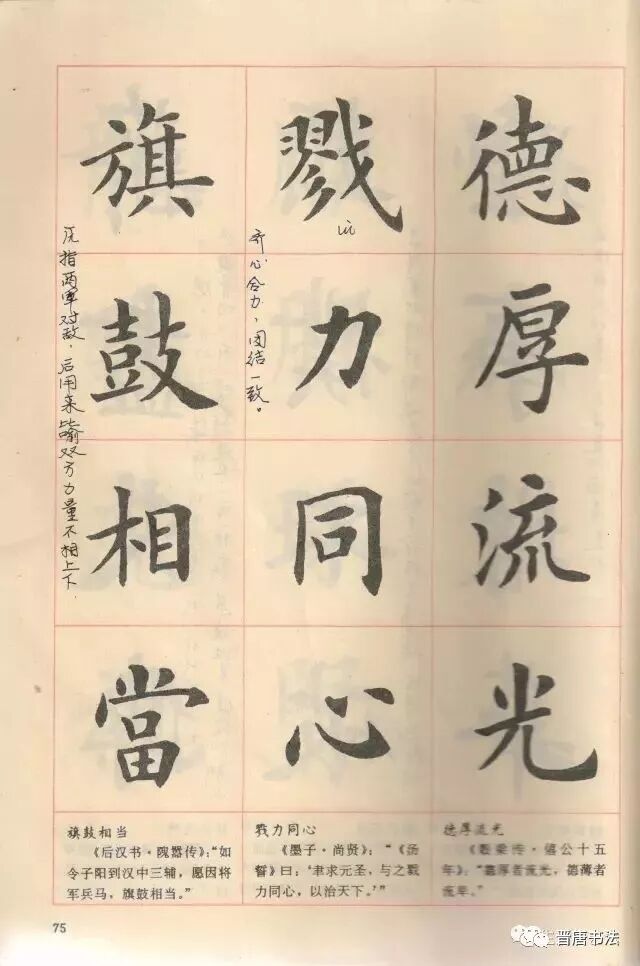 德厚流光
戮力同心
齐心合力，团结一致。
旗鼓相當
原指两军对敌，后用来比喻双方力量不相上下.
旗鼓相当
《后汉书·隗嚣传》：“如
令子阳到汉中三辅，愿因将
军兵马，旗鼓相当。”
戮力同心
《墨子·尚贤》：“《汤
誓》曰：‘聿求元圣，与之戮
力同心，以治天下。’”
德厚流光
《穀梁传·僖公十五
年》：“德厚者流光，德薄者
流卑。”
75
晋唐书法